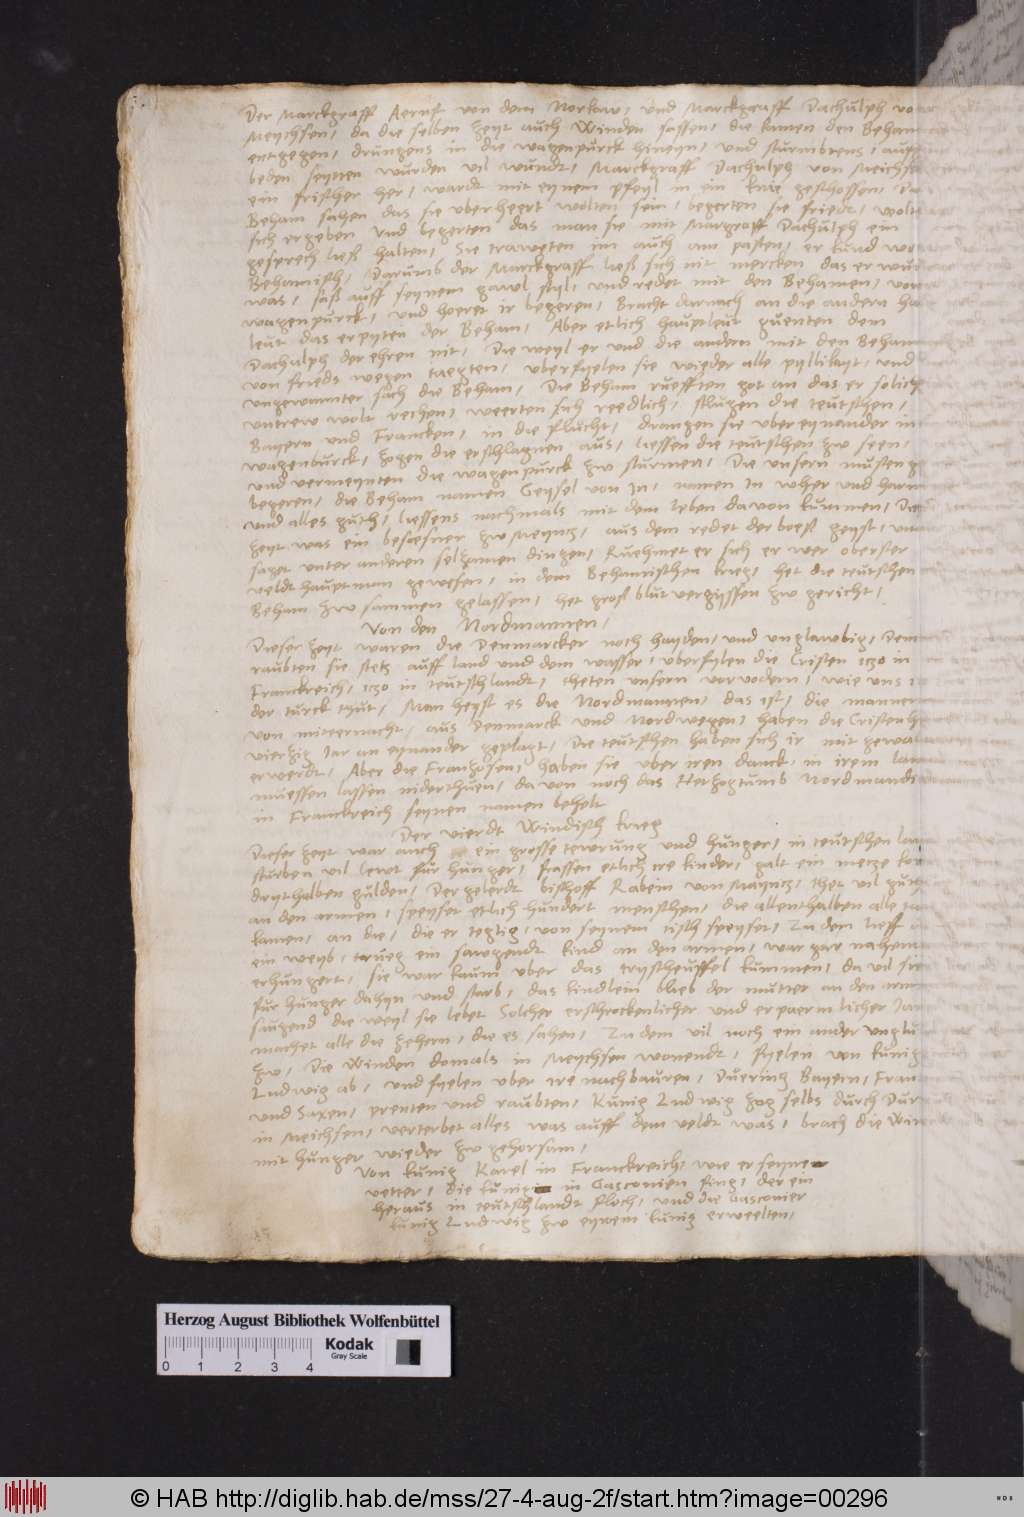 Der Marckgraff Aernst von dem Norkaw, und Marckgraff Dachulph von
Meychsen, da die selben zeyt auch Winden sassen, die kamen den Behamen
entgegen, drungens in die wagenpurck hineyn, und sturmbtens, auff
beden seytten wurden vil wundt, Marckgraff Dachulph von Meichsen
ein frischer her, wardt mit eynem pfeyl in ein knie geschossen, Da
Beham sahen das sie uberheert wolten sein, begerten sie friedt, wolten
sich ergeben und begerten das man sie mit Margraff Dachulph ein
gesprech ließ halten, Sie traweten im auch am pasten, er kund wol
Behamisch, Darumb der Marckgraff ließ sich nit mercken das er wundt
was, saß auff seynem gawl styl, und redet mit den Behamen, von
wagenpurck, und hoeret ir begeren, Bracht darnach an die andern
leut das erpyten der Beham, Aber etlich hauptleut guenten dem
Dachulph der ehren nit, Die weyl er und die andern mit den Behamen
von frieds wegen taegten, uberfyelen sie wieder alle pyllikayt, und
ungewarnter sach die Beham, Die Beham ruefften got an das er solich
untrew wolt rechen, weerten sich reedlich, slugen die teutschen,
Bayern und Francken, in die flucht, drangen sie uber eynander in
wagenburck, zogen die erschlagnen aus, liessen die teutschen zw seen,
und vermeynten die wagenpurck zw sturmen, Die unsern musten
begeren, die Beham namen Geysel von In, namen In wher und harn
und alles guth, liessens nachmals mit dem leben davon kummen, Die
zeyt was ein besesner zw Meyntz, aus dem redet der boeß geyst, und
saget unter anderen selzamen dingen, Ruehmet er sich er wer oberster
veldthauptman gewesen, in dem Behamischen krieg, het die teutschen
Beham zw sammen gelassen, het groß blut vergyssen zw gericht,
Von den Nordmannen,
Dieser zeyt waren die Denmarcker noch hayden, und unglawbig, Dem
raubten sie stetz auff land und dem wasser, uberfylen die Cristen itzo in
Franckreich, itzo in teutschlandt, theten unsern vorvodern, wie uns
der turck thut, Man heyst es die Nordmannen, das ist, die manner
von mitternacht, aus Denmarck und Nordwegen, haben die Cristen
vierzig Jar an eynander geplagt, Die teutschen haben sich ir mit gewalt
erwerdt, Aber die Franzosen, haben sie uber iren danck, in irem land
muessen lassen niderthuen, davon noch das Herzogtumb Nordmandi
in Franckreich seynen namen behelt
Der vierdt Windisch krieg
Dieser zeyt war auch ein grosse tewrung und hunger, in teutschen land
sturben vil lewt fur hunger, frassen etlich ire kinder, galt ein metze korn
drythalben gulden, Der gelerdt bischoff Rabein von Mayntz, thet vil guts
an den armen, speyset etlich hundert menschen, die allenthalben alle tag
kamen, an die, die er teglig, von seynem tisch speyset, Zu dem lieff
ein weyb, trueg ein sawgendt kind an den armen, war gar nahent
erhungert, sie war kaum uber das tryscheuffel kummen, da vil sie
fur hunger dahyn und starb, das kindlein blieb der mutter an den arm
saugend die weyl sie lebet Solcher erschrockenlicher und erpaermlicher Jam
machet alle die zehern, die es sahen, Zu dem vil noch ein ander unglu
zw, Die Winden domals in Meychsen wonendt, fyelen von kunig
Ludwig ab, und fyelen uber ire nachbauren, Duering Bayern, Fran
und Saxen, prenten und raubten, Kunig Ludwig zog selbs durch Dur
in Meichsen, verterbet alles was auff dem veldt was, brach die Win
mit hunger wieder zw gehorsam,
Von kunig Karel in Franckreich, wie er seynen
vetter, die kunig in Gasconien fing, der ein
heraus in teutschlandt floch, und die Gasconier
kunig Ludwig zw eynem kunig erweelten,
Herzog August Bibliothek Wolfenbüttel
Kodak
Gray Scale
0 1 2 3 4
© HAB http://diglib.hab.de/mss/27-4-aug-2f/start.htm?image=00296